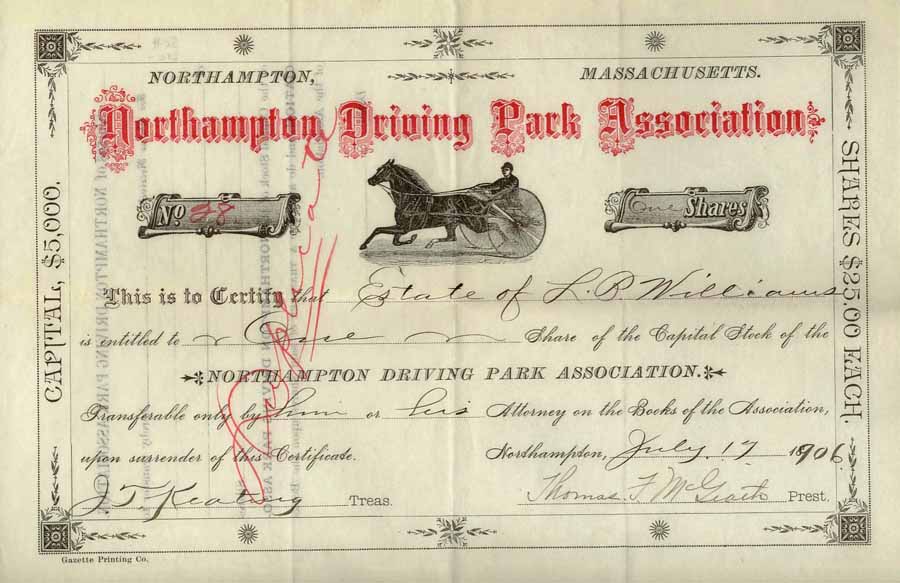 NORTHAMPTON, MASSACHUSETTS.
Northampton Driving Park Association
No 28 One Shares
CAPITAL, $5,000.
SHARES $25.00 EACH.
Duplicate
This is to Certify that Estate of L. P. Williams
is entitled to One Share of the Capital Stock of the
NORTHAMPTON DRIVING PARK ASSOCIATION.
Transferable only by him or his Attorney on the Books of the Association,
upon surrender of this Certificate. Northampton, July 17 1906
J. T. Keating Treas. Thomas F. McGrath Prest.
Gazette Printing Co.